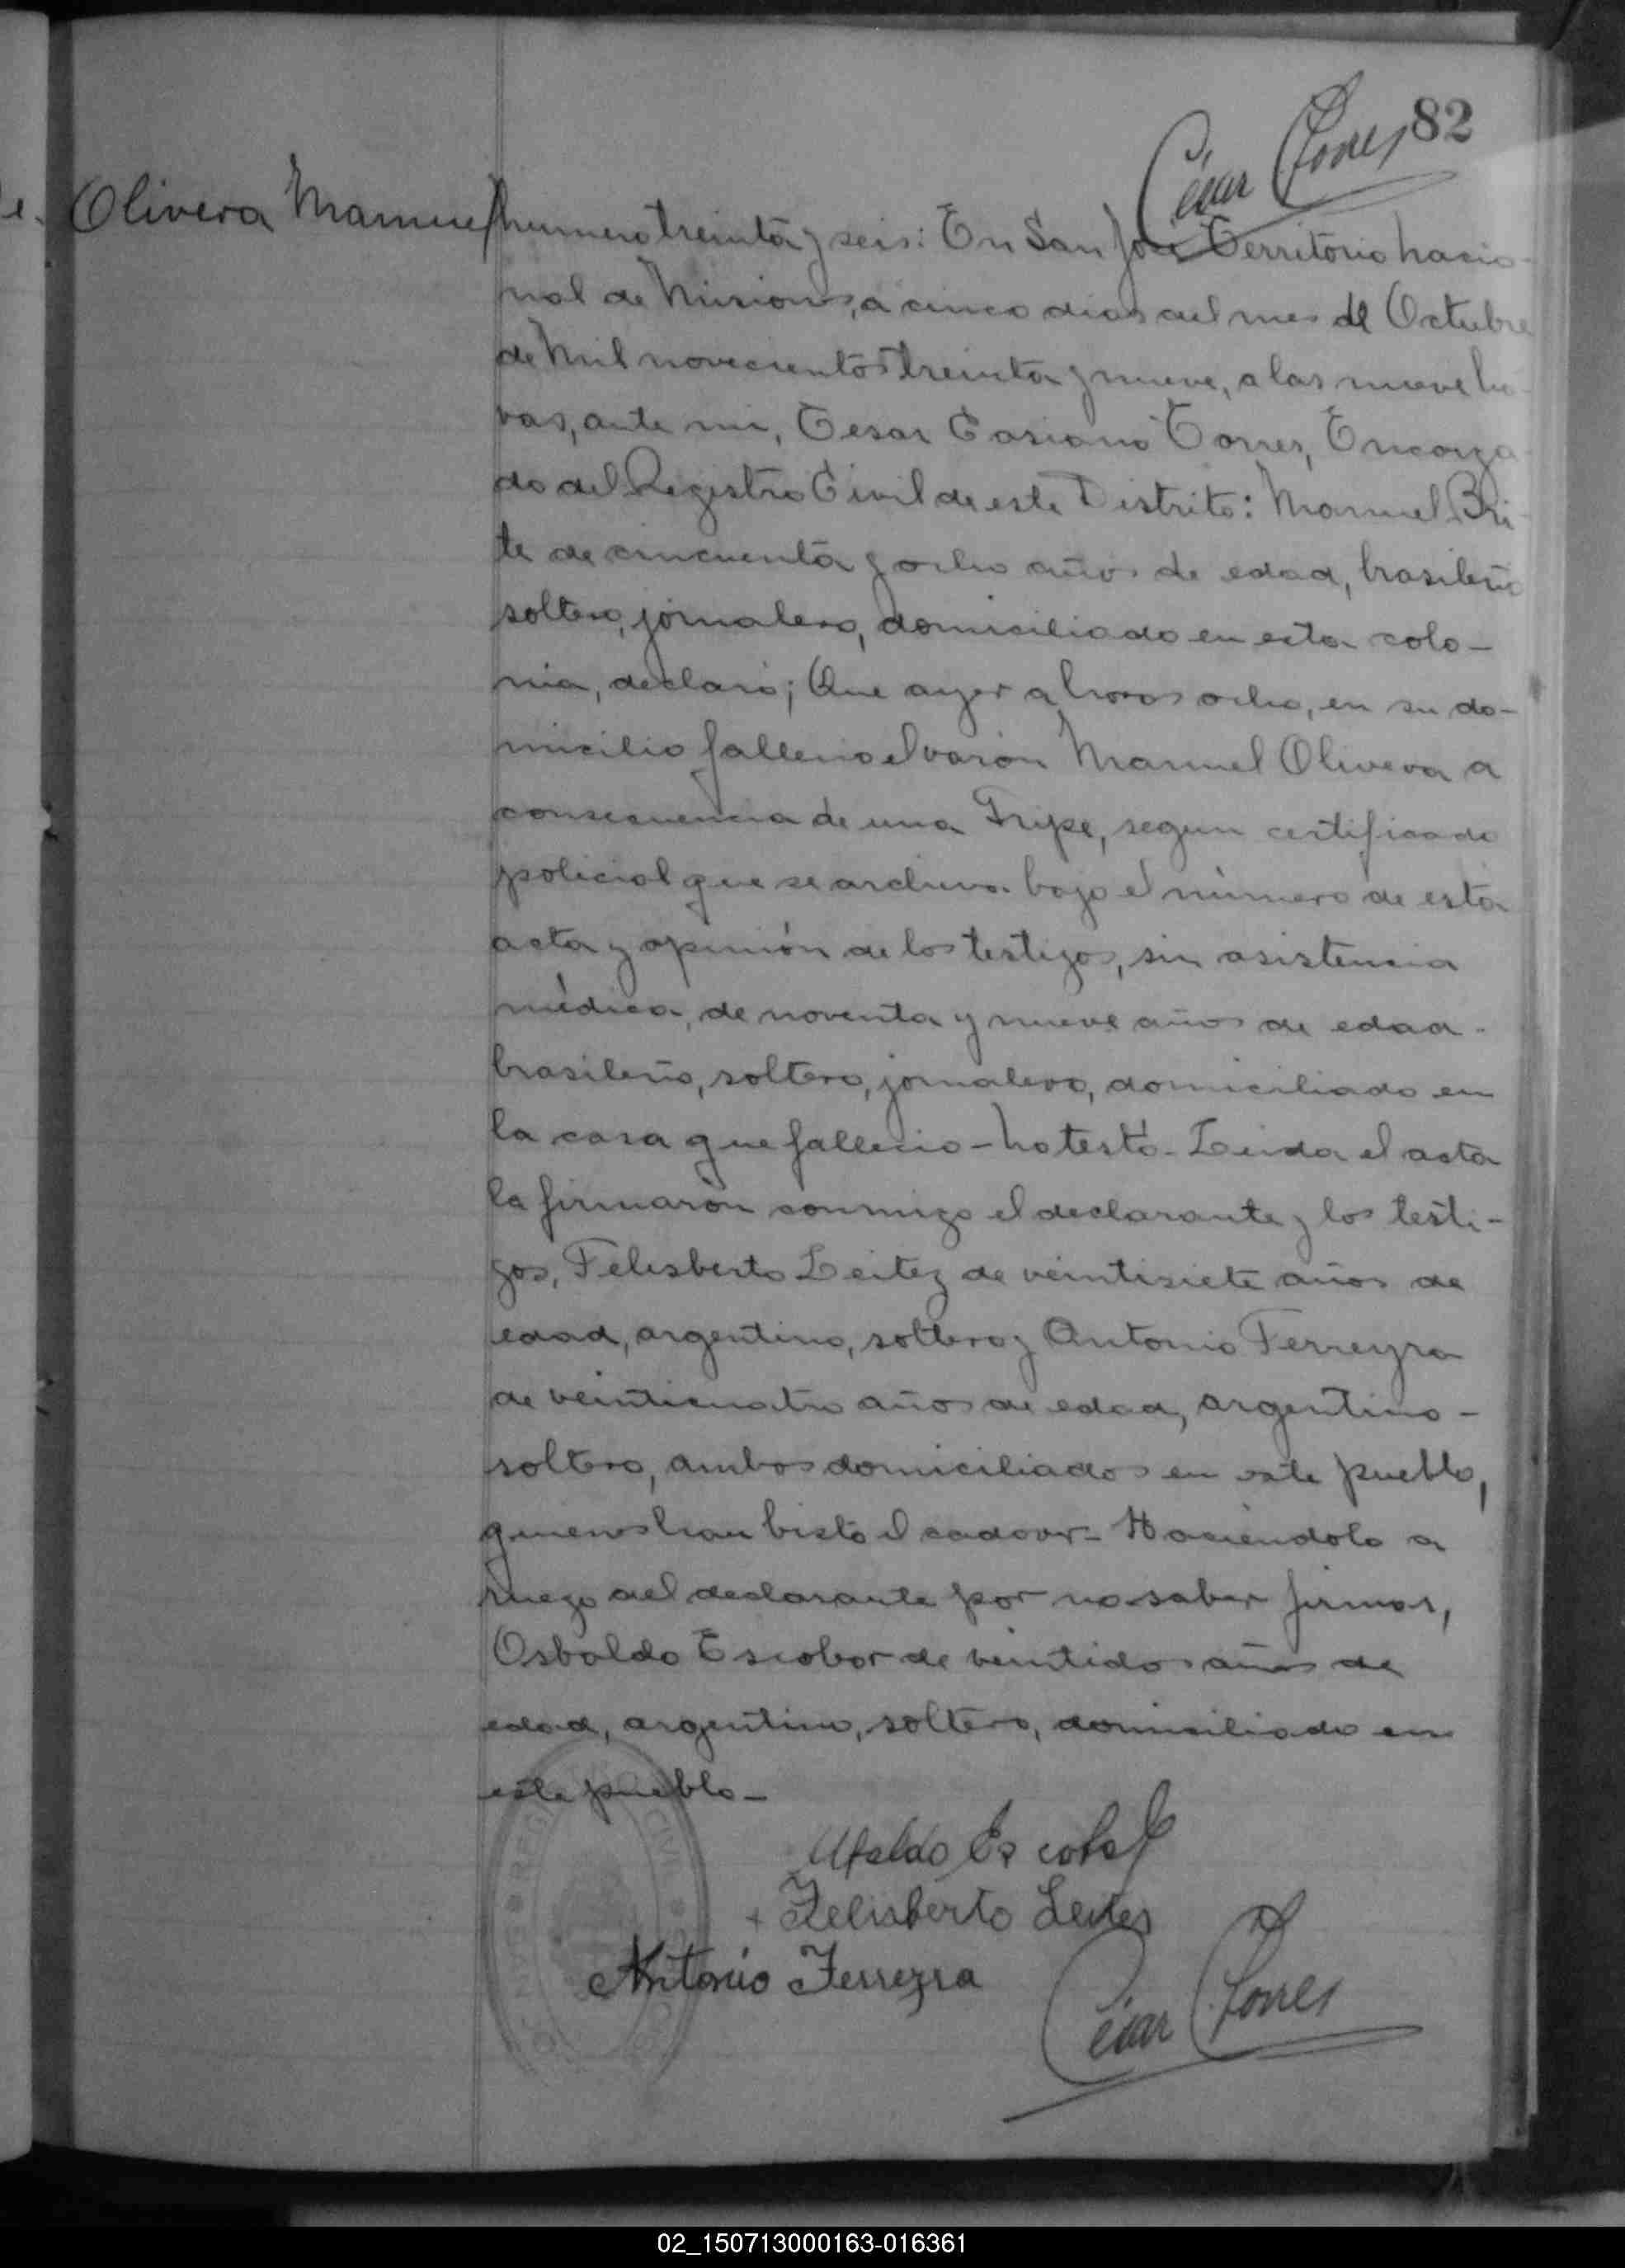 82
César Torres
Olivera Manuel
Numero treinta y seis: En San José Territorio Nacio-
nal de Misiones, a cinco dias del mes de Octubre
de Mil novecientos treinta y nueve, a las nueve ho-
ras, ante mi, Cesar Casiano Torres, Encarga-
do del Registro Civil de este Distrito: Manuel Bri-
te de cincuenta y ocho años de edad, brasileño
soltero, jornalero, domiciliado en esta colo-
nia, declaró; Que ayer a horas ocho, en su do-
micilio fallecio el varón Manuel Olivera a
consecuencia de una Gripe, segun certificado
policial que se archiva bajo el número de esta
acta y opinión de los testigos, sin asistencia
médica, de noventa y nueve años de edad-
brasileño, soltero, jornalero, domiciliado en
la casa que fallecio - No testó - Leida el acta
la firmarón conmigo el declarante y los testi-
gos, Felisberto Leitez de veintisiete años de
edad, argentino, soltero y Antonio Ferreyra
de veinticuatro años de edad, argentino -
soltero, ambos domiciliados en este pueblo,
quienes han bisto el cadaver - Haciéndolo a
ruego del declarante por no saber firmar,
Osbaldo Escobar de veintidos años de
edad, argentino, soltero, domiciliado en
este pueblo -
Escobar
Felisberto Leites
Antonio Ferreyra
César Torres
REGISTRO CIVIL
SAN JO
02_150713000163-016361